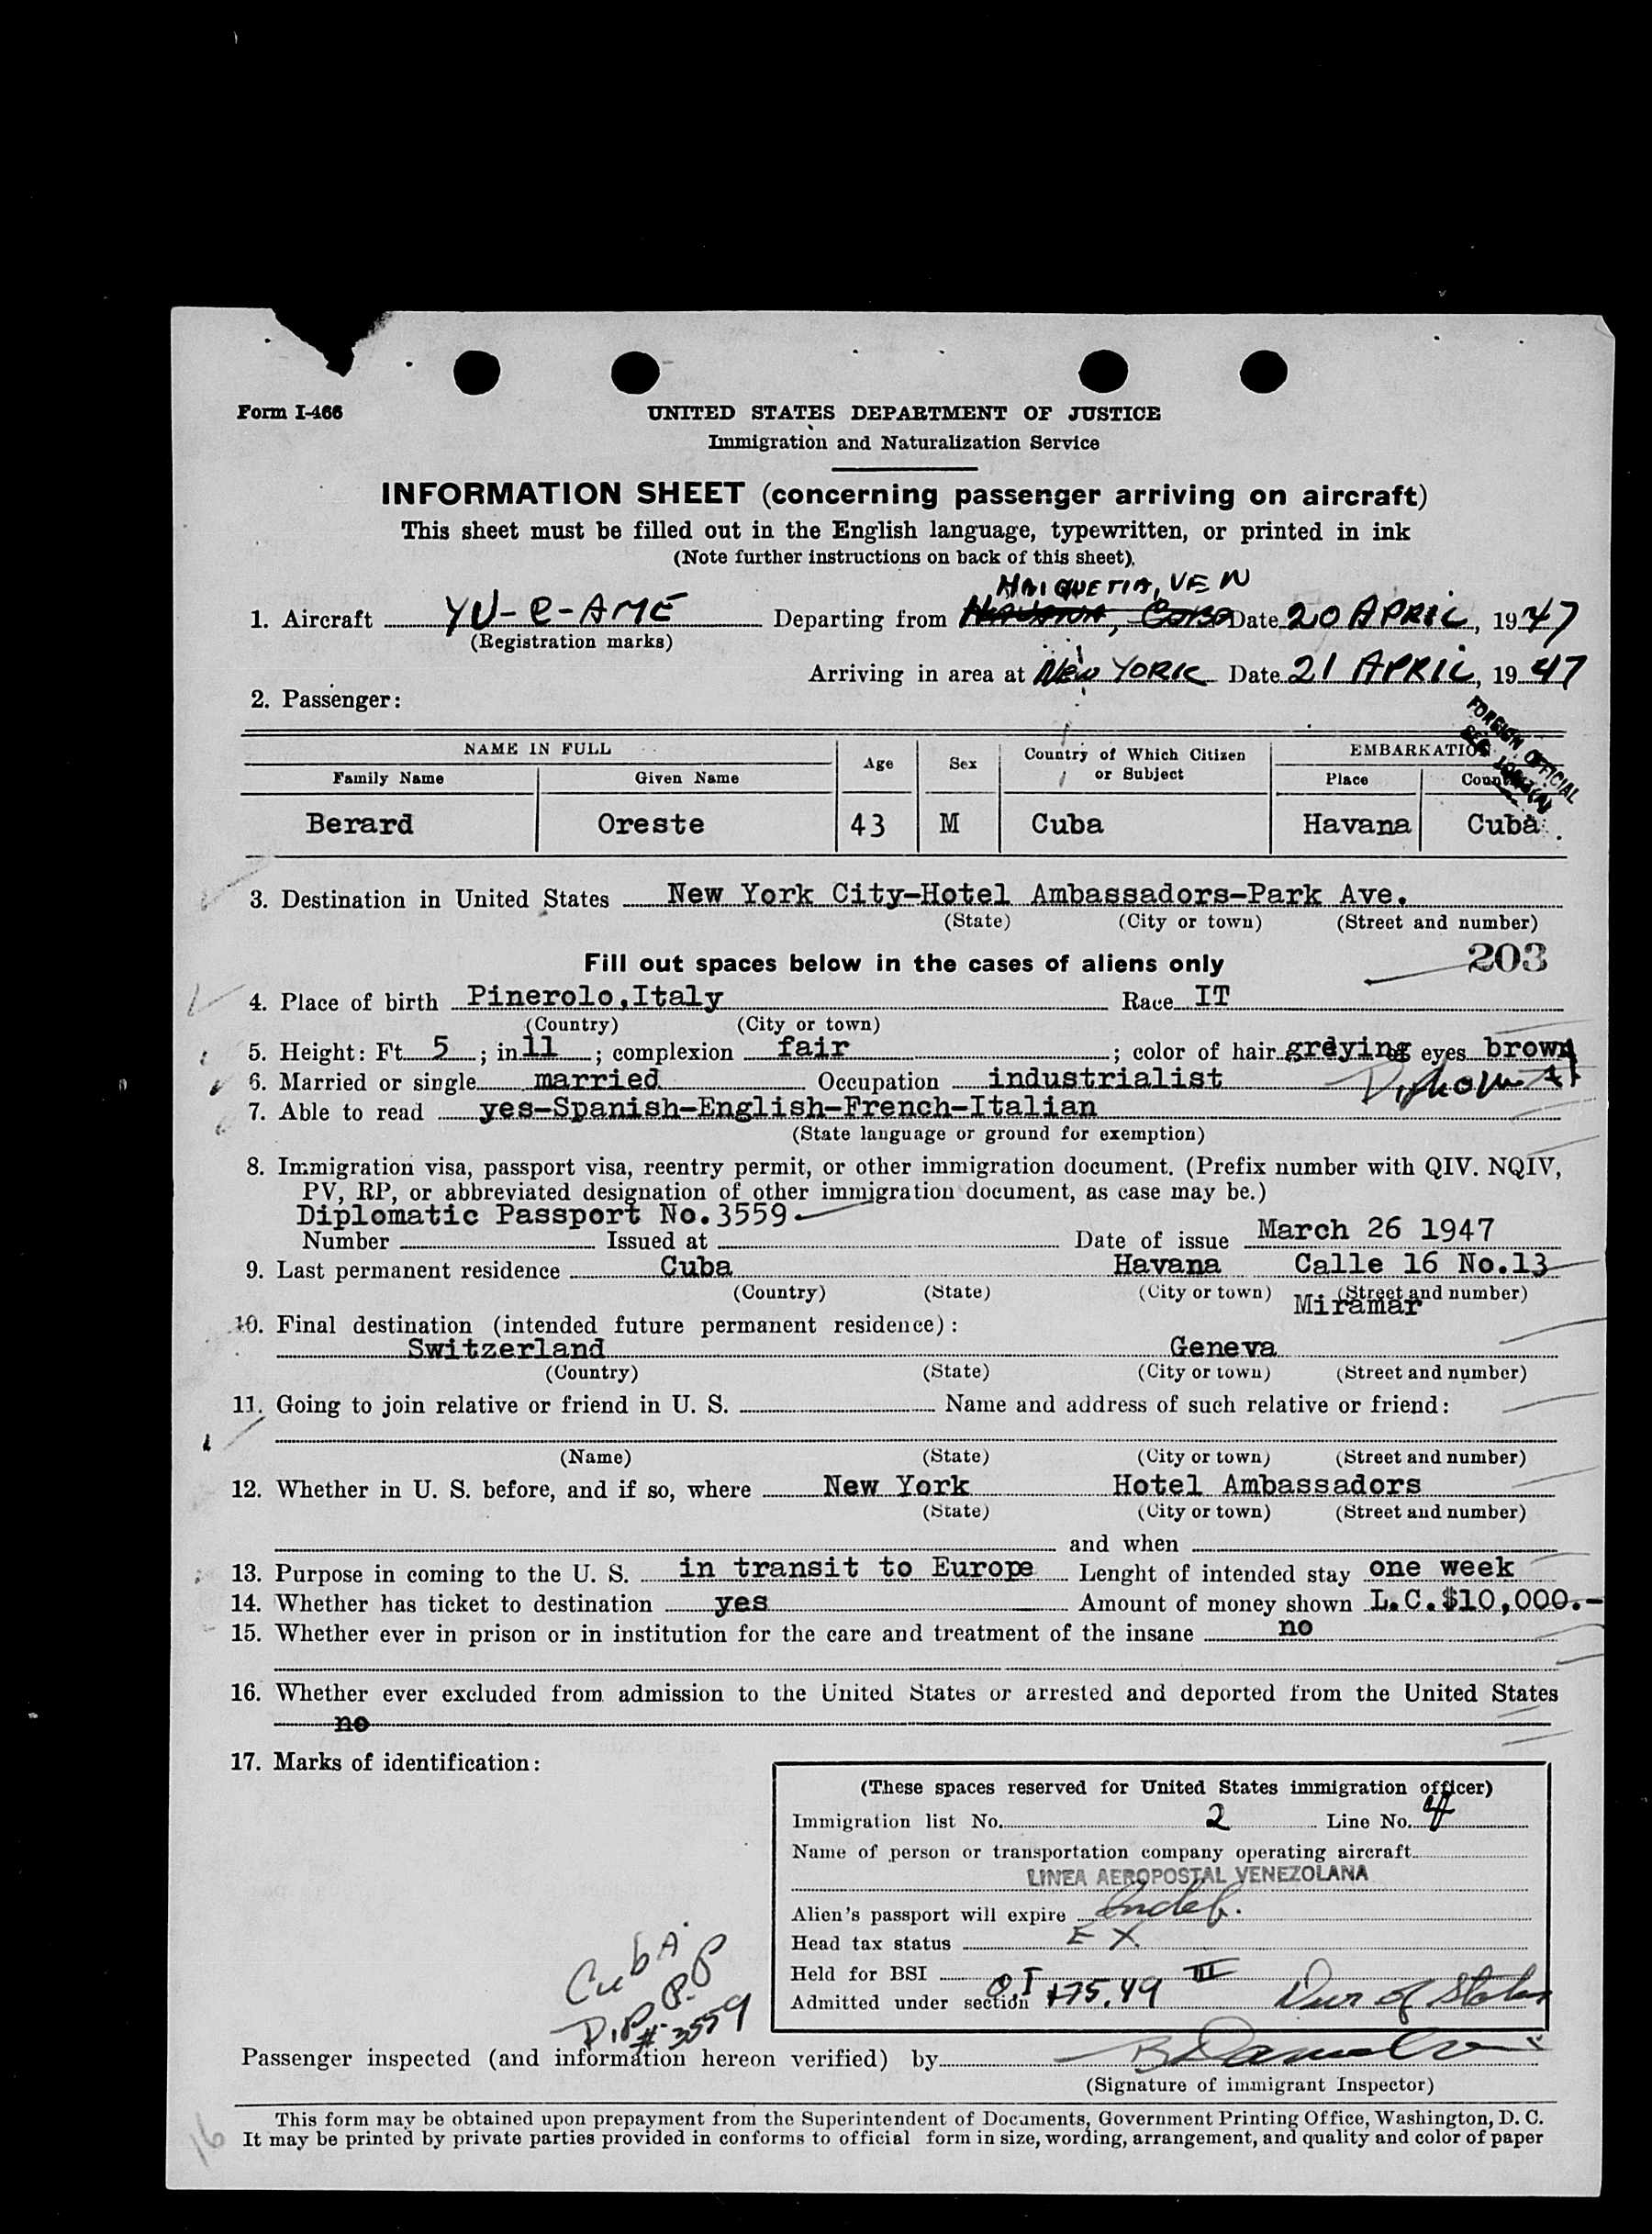 Form I-466
UNITED STATES DEPARTMENT OF JUSTICE
Immigration and Naturalization Service
INFORMATION SHEET (concerning passenger arriving on aircraft)
This sheet must be filled out in the English language, typewritten, or printed in ink
(Note further instructions on back of this sheet).
MAIQUETIA, VEN
1. Aircraft YV-C-AME Departing from Date 20 APRIL, 1947
(Registration marks)
Arriving in area at New YORK Date 21 APRIL, 1947
2. Passenger:
FOREIGN OFFICIAL
NAME IN FULL Age Sex Country of Which Citizen or Subject EMBARKATION
Family Name Given Name Place
Berard Oreste 43 M Cuba Havana Cuba
3. Destination in United States New York City-Hotel Ambassadors-Park Ave.
(State) (City or town) (Street and number)
Fill out spaces below in the cases of aliens only 203
4. Place of birth Pinerolo,Italy Race IT
(Country) (City or town)
5. Height: Ft. 5 ; in 11 ; complexion fair ; color of hair greying eyes brown
6. Married or single married Occupation industrialist Diplomat
7. Able to read yes-Spanish-English-French-Italian
(State language or ground for exemption)
8. Immigration visa, passport visa, reentry permit, or other immigration document. (Prefix number with QIV. NQIV,
PV, RP, or abbreviated designation of other immigration document, as case may be.)
Diplomatic Passport No.3559
Number Issued at Date of issue March 26 1947
9. Last permanent residence Cuba Havana Calle 16 No.13
(Country) (State) (City or town) (Street and number)
Miramar
10. Final destination (intended future permanent residence):
Switzerland Geneva
(Country) (State) (City or town) (Street and number)
11. Going to join relative or friend in U. S. Name and address of such relative or friend:
(Name) (State) (City or town) (Street and number)
12. Whether in U. S. before, and if so, where New York Hotel Ambassadors
(State) (City or town) (Street and number)
and when
13. Purpose in coming to the U. S. in transit to Europe Lenght of intended stay one week
14. Whether has ticket to destination yes Amount of money shown L.C.$10,000.-
15. Whether ever in prison or in institution for the care and treatment of the insane no
16. Whether ever excluded from admission to the United States or arrested and deported from the United States
no
17. Marks of identification:
(These spaces reserved for United States immigration officer)
Immigration list No. 2 Line No. 4
Name of person or transportation company operating aircraft
LINEA AEROPOSTAL VENEZOLANA
Alien's passport will expire Indef.
Head tax status EX
Held for BSI
Admitted under section 175.49 III Dur of Status
Cuba
DIP. P.P
# 3559
Passenger inspected (and information hereon verified) by
(Signature of immigrant Inspector)
This form may be obtained upon prepayment from the Superintendent of Documents, Government Printing Office, Washington, D. C.
It may be printed by private parties provided in conforms to official form in size, wording, arrangement, and quality and color of paper
16